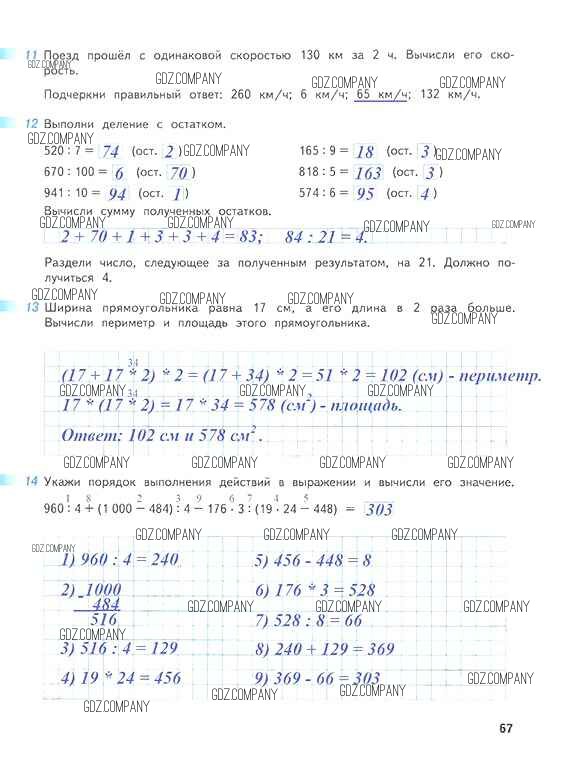 11 Поезд прошёл с одинаковой скоростью 130 км за 2 ч. Вычисли его ско-
GDZ.COMPANY
рость.
GDZ.COMPANY GDZ.COMPANY GDZ.COMPANY
Подчеркни правильный ответ: 260 км/ч; 6 км/ч; 65 км/ч; 132 км/ч.
12 Выполни деление с остатком.
GDZ.COMPANY
520 : 7 = 74 (ост. 2) GDZ.COMPANY 165 : 9 = 18 (ост. 3) GDZ.COMPANY
670 : 100 = 6 (ост. 70) 818 : 5 = 163 (ост. 3)
941 : 10 = 94 (ост. 1) 574 : 6 = 95 (ост. 4)
Вычисли сумму полученных остатков.
GDZ.COMPANY GDZ.COMPANY GDZ.COMPANY GDZ.COMPANY
2 + 70 + 1 + 3 + 3 + 4 = 83; 84 : 21 = 4.
Раздели число, следующее за полученным результатом, на 21. Должно по-
лучиться 4.
GDZ.COMPANY GDZ.COMPANY GDZ.COMPANY
13 Ширина прямоугольника равна 17 см, а его длина в 2 раза больше.
GDZ.COMPANY
Вычисли периметр и площадь этого прямоугольника.
34
(17 + 17 * 2) * 2 = (17 + 34) * 2 = 51 * 2 = 102 (см) - периметр.
GDZ.COMPANY 34 GDZ.COMPANY GDZ.COMPANY
17 * (17 * 2) = 17 * 34 = 578 (см²) - площадь.
Ответ: 102 см и 578 см².
GDZ.COMPANY GDZ.COMPANY GDZ.COMPANY GDZ.COMPANY
14 Укажи порядок выполнения действий в выражении и вычисли его значение.
1 8 2 3 9 6 7 4 5
960 : 4 + (1 000 − 484) : 4 − 176 · 3 : (19 · 24 − 448) = 303
GDZ.COMPANY GDZ.COMPANY GDZ.COMPANY
GDZ.COMPANY
1) 960 : 4 = 240 5) 456 - 448 = 8
2) - 1000 6) 176 * 3 = 528
484 GDZ.COMPANY GDZ.COMPANY GDZ.COMPANY
516 7) 528 : 8 = 66
GDZ.COMPANY
3) 516 : 4 = 129 8) 240 + 129 = 369
4) 19 * 24 = 456 9) 369 - 66 = 303
GDZ.COMPANY GDZ.COMPANY GDZ.COMPANY
GDZ.COMPANY
67